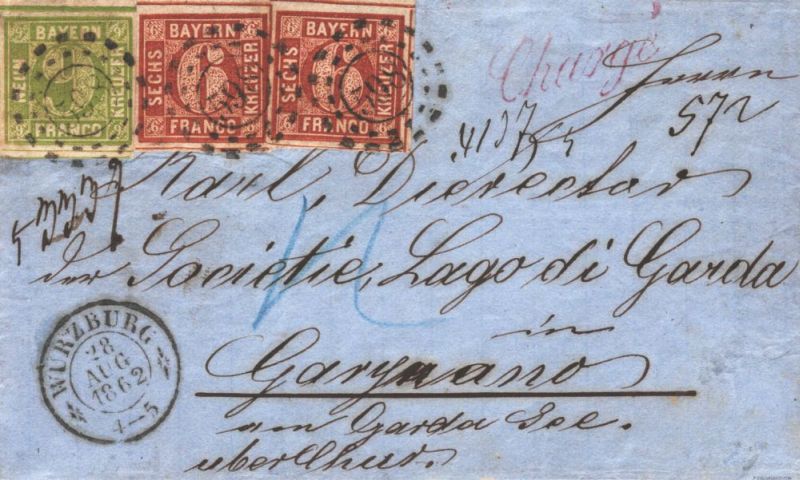 BAYERN
NEUN
KREUZER
FRANCO
9
BAYERN
SECHS
6
KREUZER
FRANCO
BAYERN
SECHS
6
KREUZER
FRANCO
Chargé
Herrn
572
Karl, Dierector
der Societie, Lago di Garda
in
Gargnano
am Garda See.
uber Chur.
WÜRZBURG
28
AUG
1862
4-5